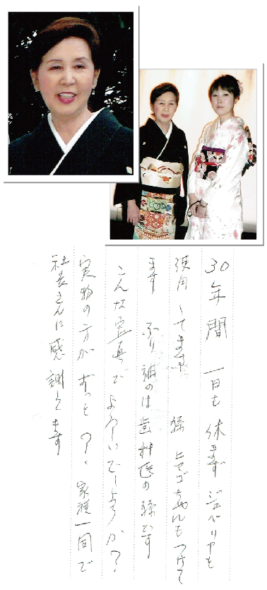 30年間一日も休まず ジュバリアを
使用してます 孫、ヒマゴちゃんもつけて
ます ふり袖のは意神悪の孫です
こんな写真でよろしいでしょうか?
実物の方がずっと?、家族一同で
社長さんに感謝してます